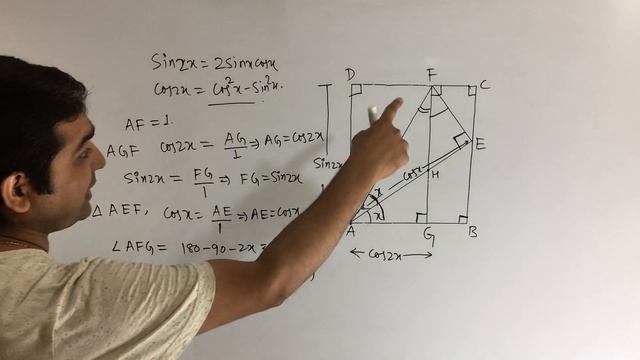 Sin2x = 2sinxcosx
Cos2x = Cos²x-Sin²x.
AF = 1.
AGF Cos2x = AG/1 ⇒ AG = Cos2x
Sin2x = FG/1 ⇒ FG = Sin2x
△ AEF, Cosx = AE/1 ⇒ AE = Cosx
∠AFG = 180-90-2x =
D F C
Sin2x
E
cosx
H
x
x
A G B
Cos2x